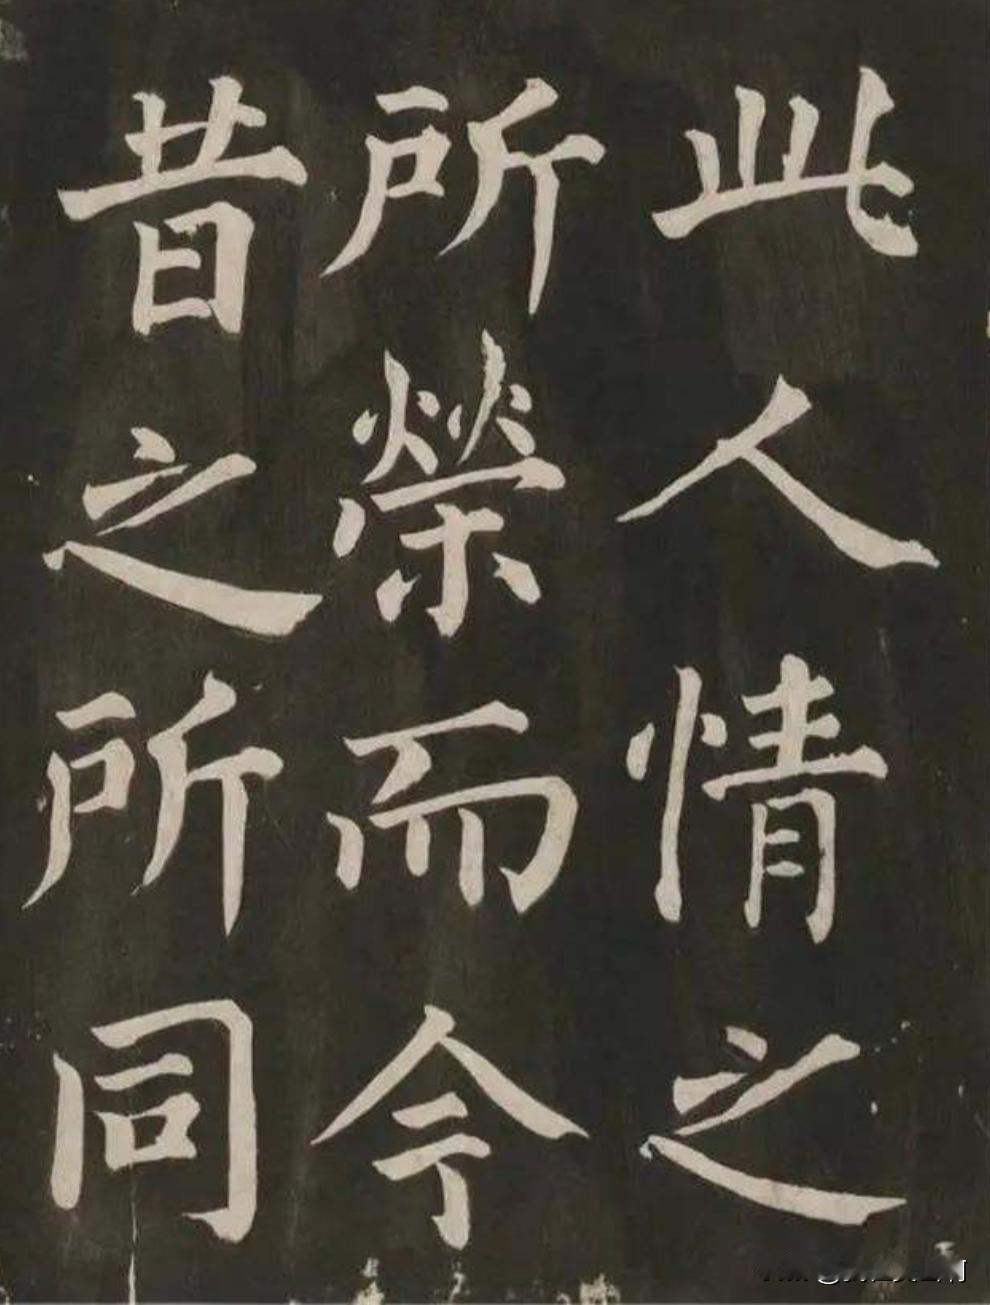 此人情之
所榮而今
昔之所同